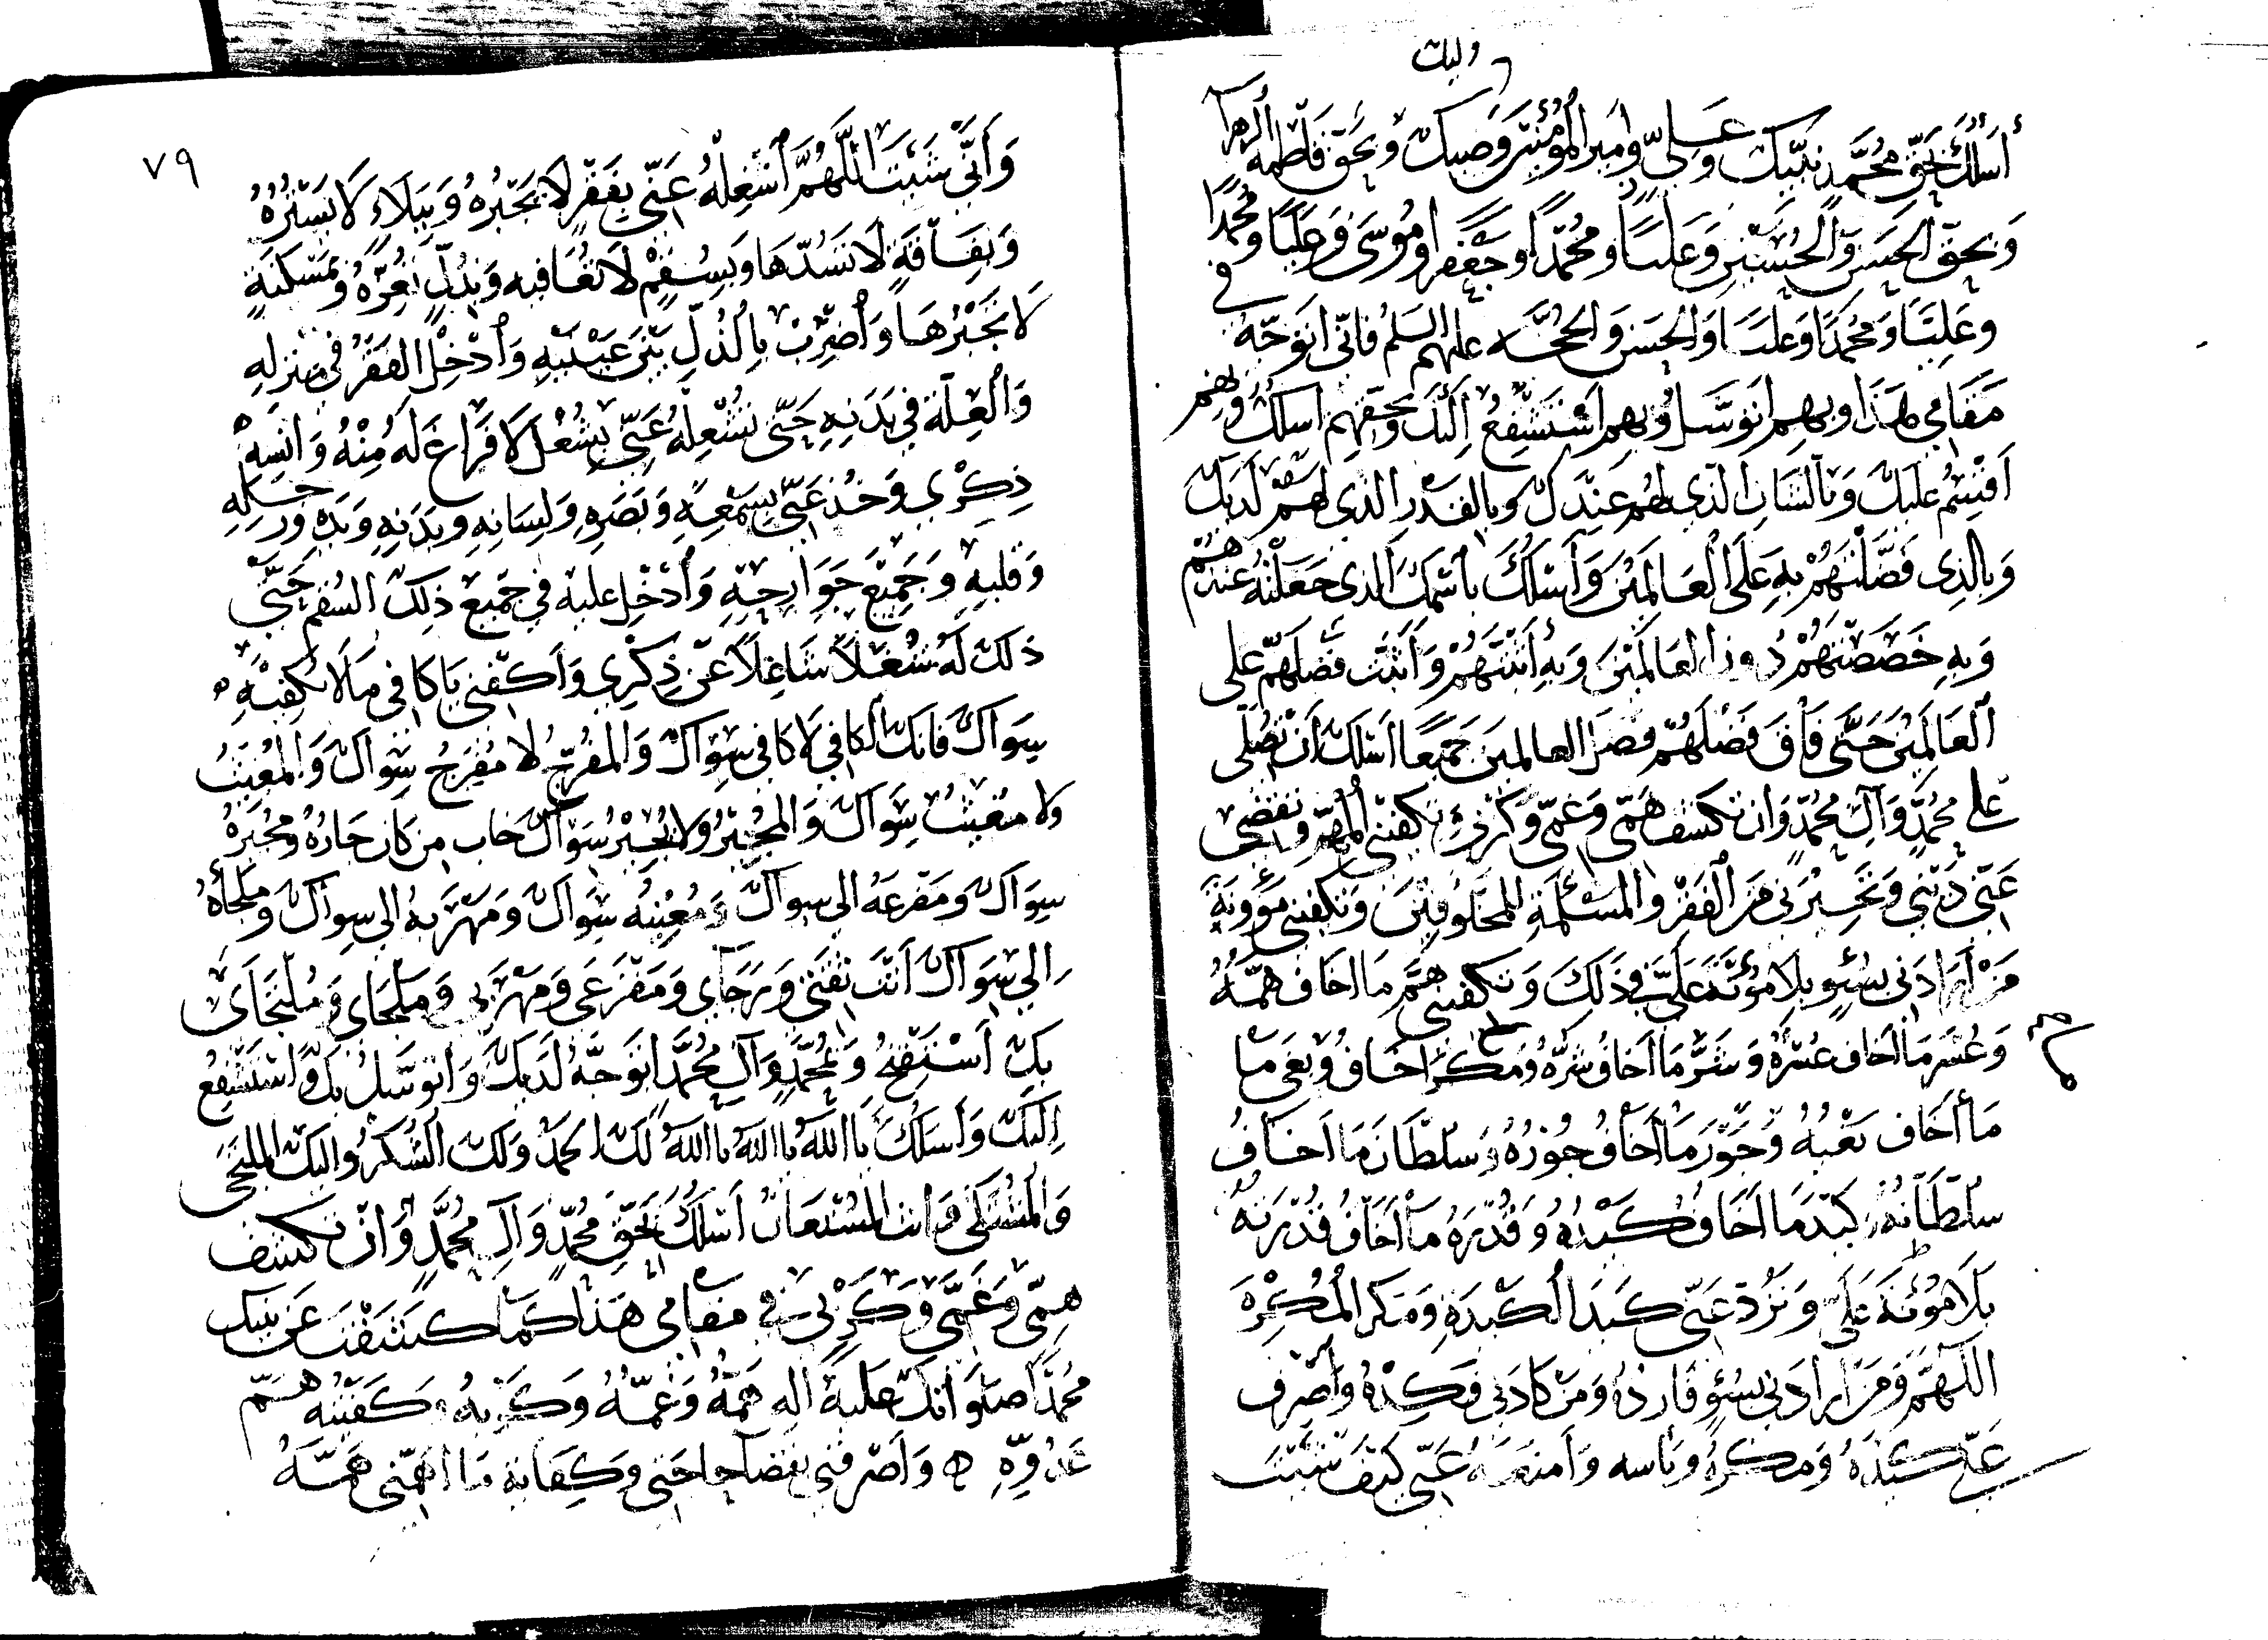 وليك
أسألك بحق محمد نبيك وعلي أمير المؤمنين وصيك وبحق فاطمة الزهرا
وبحق الحسن والحسين وعليا ومحمدا وجعفرا وموسى وعليا ومحمدا
وعليا ومحمدا وعليا والحسن والحجه عليهم السلم فاني اتوجه في
مقامي هذا وبهم اتوسل وبهم استشفع اليك وبحقهم اسلك وبهم
اقسم عليك وبالشان الذي لهم عندك وبالقدر الذي لهم لديك
وبالذي فضلتهم به على العالمين وأسلك باسمك الذي جعلته عندهم
وبه خصصتهم دون العالمين وبه أبنتهم وأبنت فضلهم على
العالمين حتى فاق فضلهم فضل العالمين جميعا اسلك أن تصلى
على محمد وآل محمد وان تكشف همى وغمى وكربى وتكفنى المهم وتقضى
عنى دينى وتجيرنى من الفقر والمسئلة للمخلوقين وتكفنى مؤونة
من أرادنى بسوء بلا مؤنة على في ذلك وتكفنى هم ما اخاف همه
وعسر ما اخاف عسره وشر ما اخاف شره ومكر ما اخاف وبغى ما
ما أخاف بغيه وجور ما أخاف جوره وسلطان ما اخاف
سلطانه وكيد ما اخاف كيده وقدرة ما أخاف قدرته
بلا مؤنة على وترد عنى كيد الكيدة ومكر المكرة
اللهم ومن ارادنى بسوء فارده ومن كادنى فكده وأصرف
عنى كيده ومكره وباسه وامنعه عنى كيف شئت
٧٩
وأنى شئت اللهم أشغله عنى بفقر لا تجبره وببلاء لا تستره
وبفاقة لا تسدها وبسقم لا تعافيه وبذل لا تعزه وبمسكنة
لا تجبرها وأضرب بالذل بين عينيه وأدخل الفقر في منزله
والعلة في بدنه حتى تشغله عنى بشغل لا فراغ له منه وانسه
ذكري وخذ عنى بسمعه وبصره ولسانه وبدنه ويده ورجله
وقلبه وجميع جوارحه وأدخل عليه في جميع ذلك السقم حتى
ذلك له شغلا شاغلا عن ذكري وأكفني يا كافي ما لا يكفيه
سواك فانك الكافي لا كافي سواك والمفرج لا مفرج سواك والمغيث
ولا مغيث سواك والمجير ولا مجير سواك خاب من كان جاره ومجيره
سواك ومفزعه الى سواك ومغيثه سواك ومهربه الى سواك وملجأه
الى سواك أنت ثقتى ورجاى ومفزعى ومهربى وملجاى وملتجاى
بك أستفتح وبمحمد وآل محمد اتوجه لديك وأتوسل بك واستشفع
اليك وأسلك يا الله يا الله يا الله لك الحمد ولك الشكر واليك الملتجى
والمشتكى وانت المستعان أسلك بحق محمد وآل محمد وأن تكشف
همى وغمى وكربى في مقامي هذا كما كشفت عن نبيك
محمدا صلواتك عليه اله همه وغمه وكربه وكفيته هم
عدوه وأصرفنى بقضا حاجتى وكفاية ما اهمنى همه